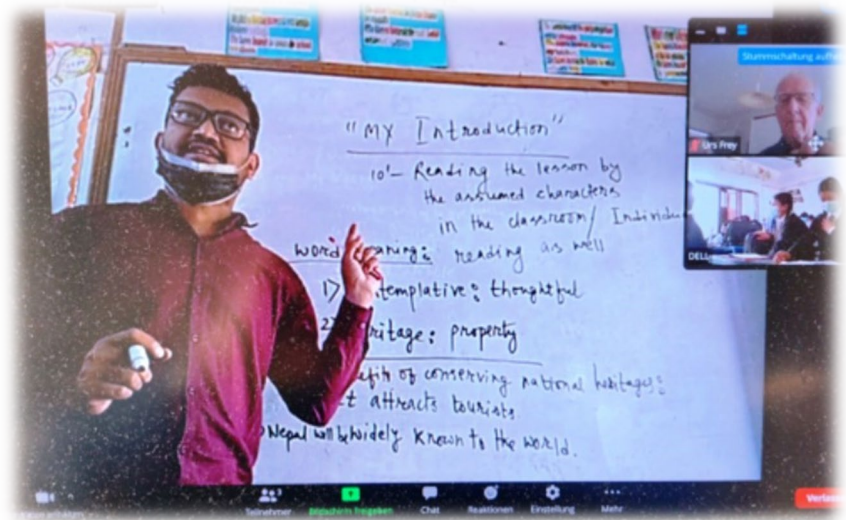 "My Introduction"
10'- Reading the lesson by
the assumed characters
in the classroom/ Individu
word meaning: reading as well
1) templative: thoughtful
2) ritage: property
efits of conserving national heritages:
t attracts tourists.
Nepal will be widely known to the world.
Stummschaltung aufhe
Urs Frey
DELL
Teilnehmer
3
Bildschirm freigeben
Chat
Reaktionen
Einstellung
Mehr
Verlass